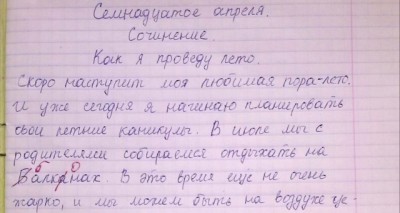 Семнадцатое апреля.
Сочинение.
Как я проведу лето.
Скоро наступит моя любимая пора-лето.
И уже сегодня я начинаю планировать
свои летние каникулы. В июле мы с
родителями собираемся отдыхать на
Балканах. В это время ещё не очень
жарко, и мы можем быть на воздухе це-